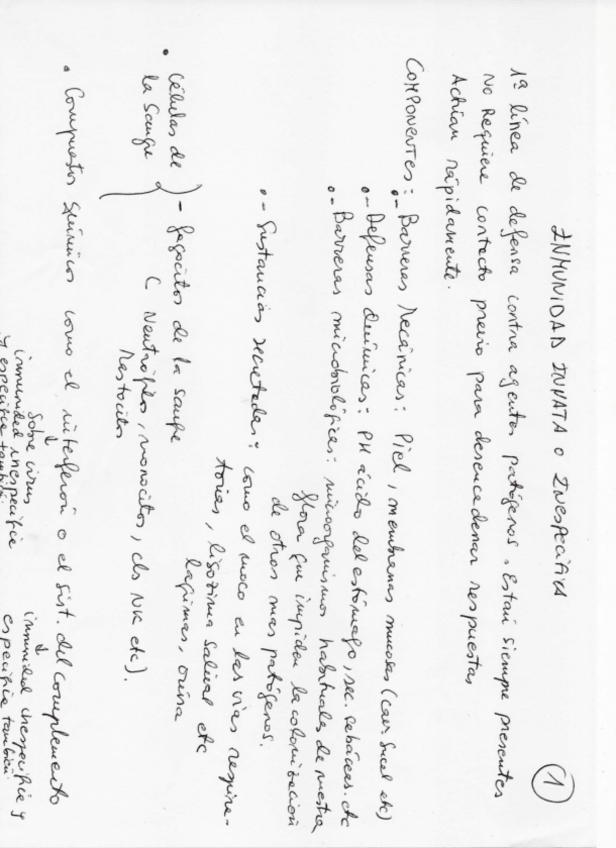 1
INMUNIDAD INNATA O INESPECÍFICA
1ª línea de defensa contra agentes patógenos. Están siempre presentes
No Requiere contacto previo para desencadenar respuestas
Actúan rápidamente.
COMPONENTES:
- Barreras Mecánicas: Piel, membranas mucosas (etc)
- Defensas Químicas: PH ácido del estómago, sec. sebáceas. etc
- Barreras microbiológicas: microorganismos habituales de nuestra
flora que impiden la colonización
de otros mas patógenos.
- Sustancias secretadas: como el moco en las vías respira-
torias, lisozima salival etc
lagrimas, orina
• Células de
la Sangre } - fagocitos de la sangre
( Neutrófilos, monocitos, cls NK etc).
Mastocitos
• Compuestos Químicos como el interferón o el Sist. del Complemento
Sobre virus
inmunidad inespecífica
y específica también
inmunidad inespecífica y
específica también